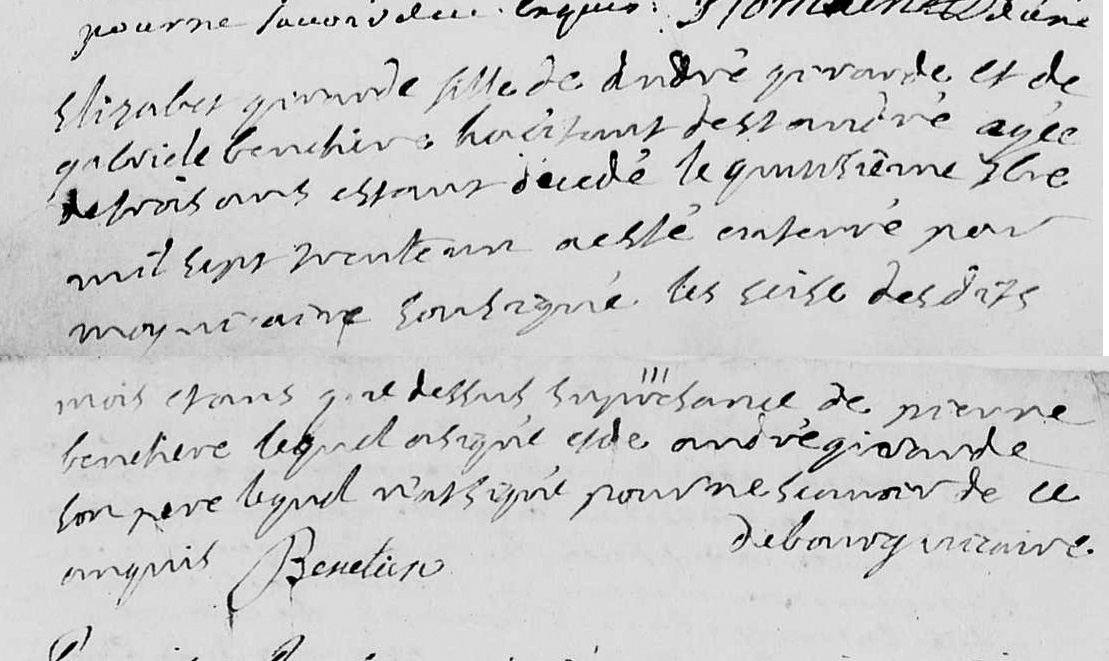 pourne scavoir de ce enquis.
Elizabet girarde fille de André girarde et de
gabriele benchere habitant de st andré agée
de trois ans estant décedé le quinsiême 9bre
mil sept trente un a esté enterré par
moy vicaire soubsigné les seise desdits
mois et ans que dessus en presance de pierre
benchere lequel a signé et de andré girarde
son pere lequel n'at signé pour ne scavoir de ce
enquis
debourg vicaire.